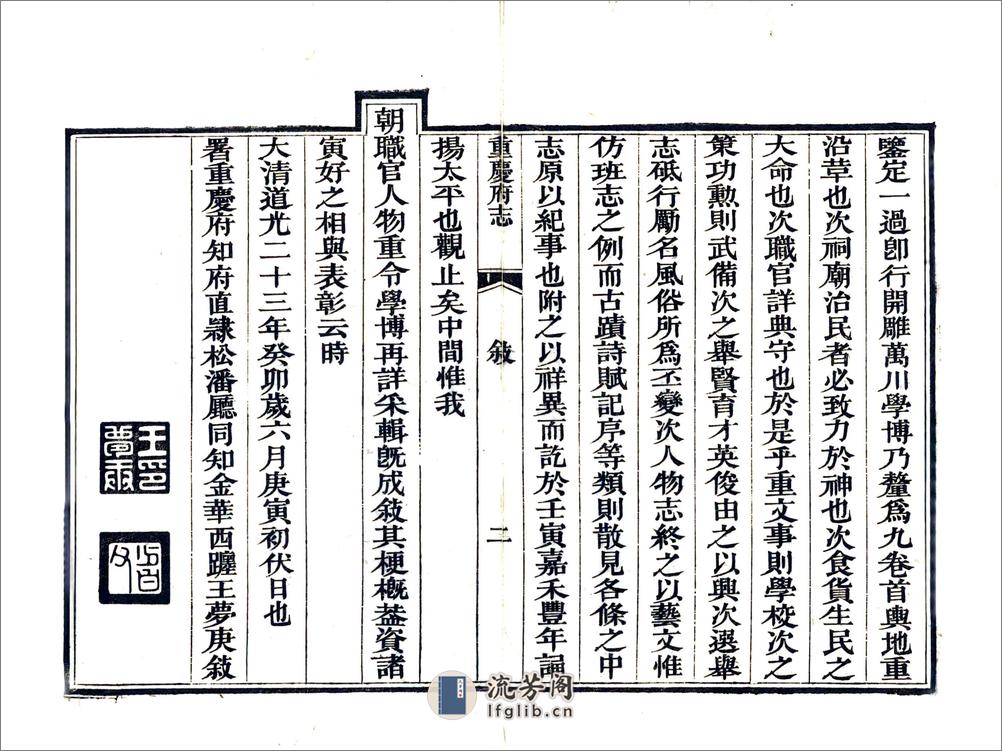 鑒定一過卽行開雕萬川學博乃釐爲九卷首輿地重
沿革也次祠廟治民者必致力於神也次食貨生民之
大命也次職官詳典守也於是乎重文事則學校次之
策功勲則武備次之舉賢育才英俊由之以興次選舉
志砥行勵名風俗所爲丕變次人物志終之以藝文惟
仿班志之例而古蹟詩賦記序等類則散見各條之中
志原以紀事也附之以祥異而訖於壬寅嘉禾豐年誦
重慶府志 敘 二
揚太平也觀止矣中間惟我
朝職官人物重令學博再詳采輯旣成敘其梗槪葢資諸
寅好之相與表彰云時
大清道光二十三年癸卯歲六月庚寅初伏日也
署重慶府知府直隸松潘廳同知金華西躔王夢庚敘
王印夢庚
流芳阁
lfglib.cn